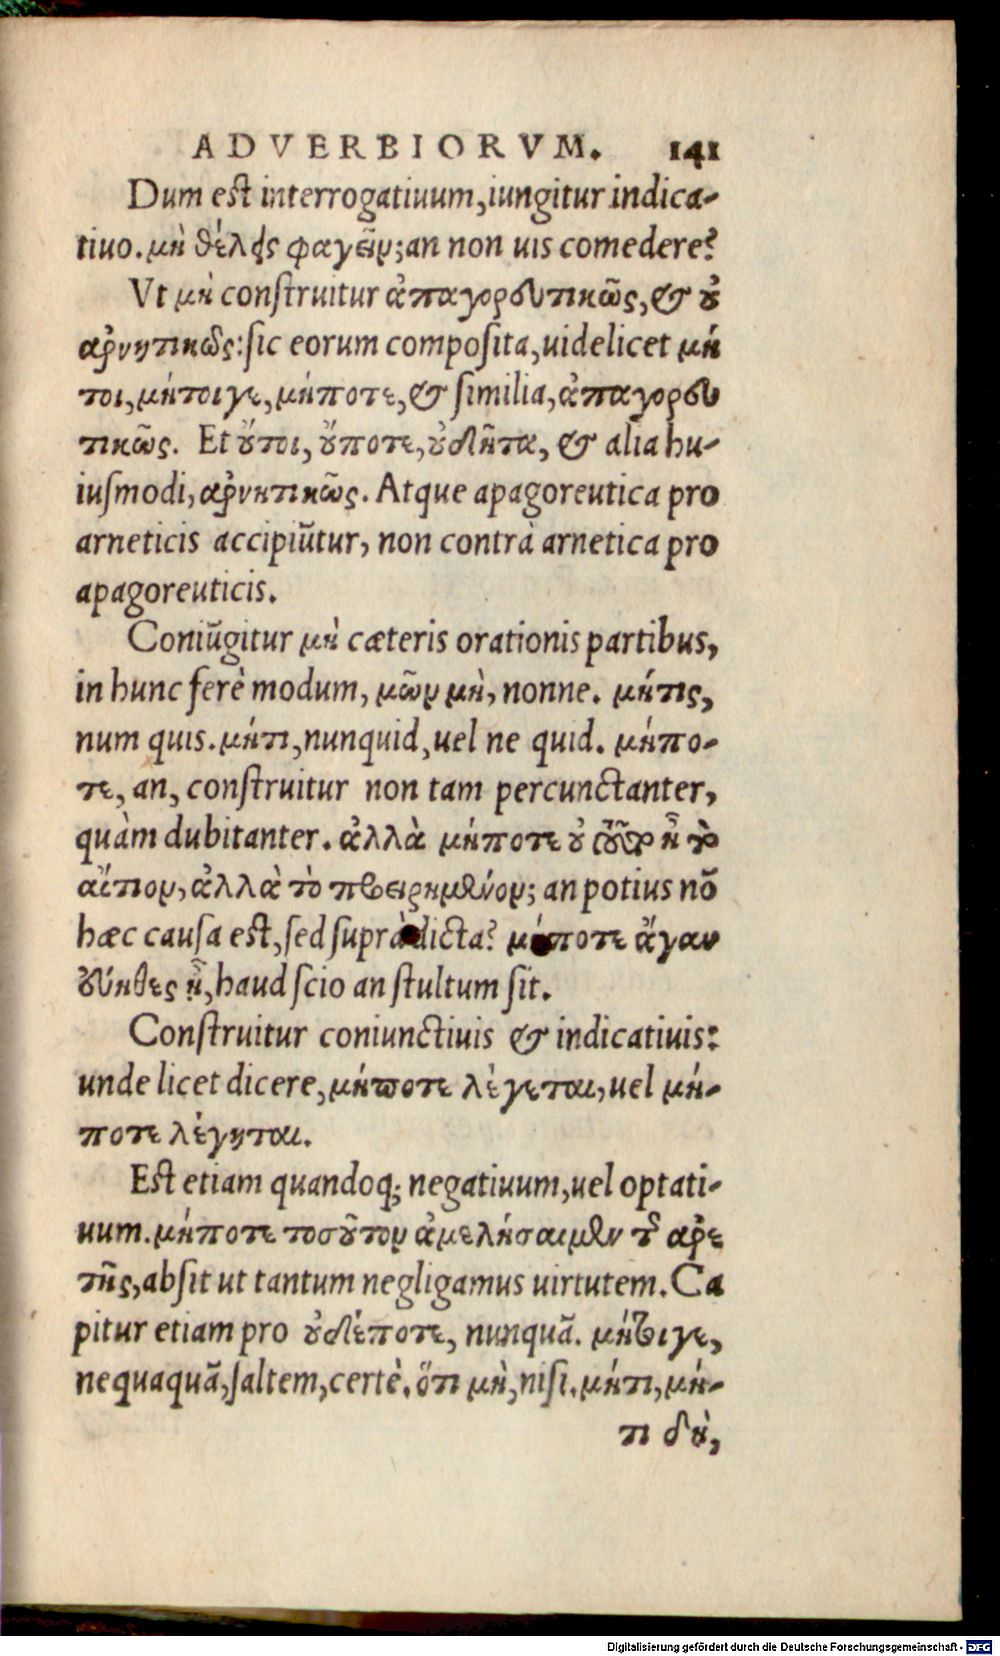 ADVERBIORVM. 141
Dum est interrogatiuum, iungitur indica-
tiuo. μὴ θέλεις φαγεῖν; an non uis comedere?
Vt μὴ construitur ἀπαγορευτικῶς, & οὐ
ἀρνητικῶς: sic eorum composita, uidelicet μή
τοι, μήτοιγε, μήποτε, & similia, ἀπαγορευ
τικῶς. Et οὔτοι, οὔποτε, οὐδῆτα, & alia hu-
iusmodi, ἀρνητικῶς. Atque apagoreutica pro
arneticis accipiũtur, non contrà arnetica pro
apagoreuticis.
Coniũgitur μὴ cæteris orationis partibus,
in hunc ferè modum, μῶν μὴ, nonne. μήτις,
num quis. μήτι, nunquid, uel ne quid. μήπο-
τε, an, construitur non tam percunctanter,
quàm dubitanter. ἀλλὰ μήποτε οὐ τοῦτο ᾖ τὸ
αἴτιον, ἀλλὰ τὸ προειρημένον; an potius nõ
hæc causa est, sed suprà dicta? μήποτε ἄγαν
εὔηθες ᾖ, haud scio an stultum sit.
Construitur coniunctiuis & indicatiuis:
unde licet dicere, μήποτε λέγεται, uel μή-
ποτε λέγηται.
Est etiam quandoq; negatiuum, uel optati-
uum. μήποτε τοσοῦτον ἀμελήσαιμεν τῆς ἀρε
τῆς, absit ut tantum negligamus uirtutem. Ca
pitur etiam pro οὐδέποτε, nunquã. μήτοιγε,
nequaquã, saltem, certè. ὅτι μὴ, nisi. μήτι, μή-
τι δὴ,
Digitalisierung gefördert durch die Deutsche Forschungsgemeinschaft - DFG